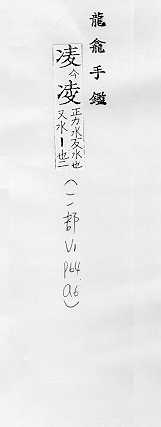 龍龕手鑑
凌今凌正力水反水也又水丨也二
(二部V1 P64.a6)